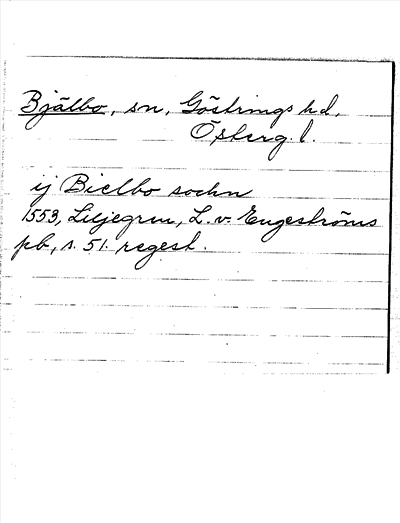 Bjälbo, sn, Göstrings hd,
Östерg. l.
ij Bielbo sochn
1553, Liljegren, L. v. Engeströms
pb, s. 51. regest.